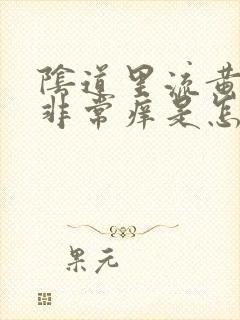 陰道里流黄
非常痒是怎
果元